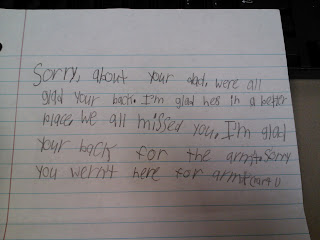 Sorry, about your dad, were all
glad your back. I'm glad hes in a better
place, we all missed you, I'm glad
your back for the armt. Sorry
you wern't here for armt (part 1)